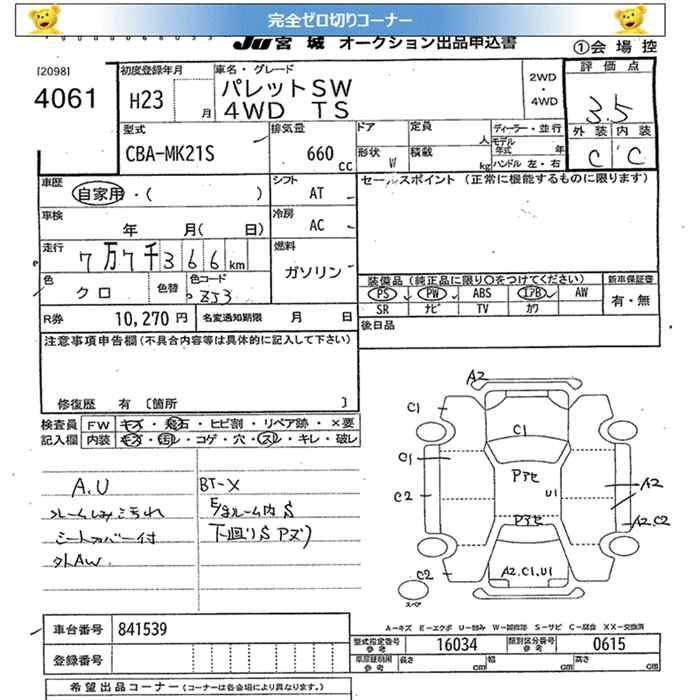 完全ゼロ切りコーナー
JU宮城 オークション出品申込書 ①会場控
[2098]
4061
初度登録年月 H23 月
車名・グレード パレットSW
4WD TS
2WD
・
4WD
評価点
3.5
外装 内装
C C
型式 CBA-MK21S
排気量 660 cc
ドア 定員 人
形状 W 積載 kg
ディーラー・並行
モデル年式 年
ハンドル 左・右
車歴 自家用・( )
シフト AT
セールスポイント (正常に機能するものに限ります)
車検 年 月( 日)
冷房 AC
走行 7万7千366km
燃料 ガソリン
色 クロ 色替 色コード ZJ3
装備品 (純正品に限り〇をつけてください) 新車保証書
PS PW ABS エアB AW 有・無
SR ナビ TV カワ
R券 10,270円 名変通知期限 月 日
後日品
注意事項申告欄(不具合内容等は具体的に記入して下さい)
修復歴 有 〔箇所 〕
検査員記入欄
FW キズ・飛石・ヒビ割・リペア跡・×要
内装 キズ・汚レ・コゲ・穴・スレ・キレ・破レ
A.U
シートカバー付
外AW
BT-X
E/gルーム内S
下廻りS アズリ
A2
C1
C1
C1
Pアセ
C2
U1
A2
Pアセ
A2 C2
C2
A2.C1.U1
スペア
A-キズ E-エクボ U-凹み W-補修跡 S-サビ C-腐食 XX-交換済
車台番号 841539
型式指定番号 参考 16034 類別区分番号 参考 0615
登録番号
車庫証明用 参考 長さ cm 幅 cm 高さ cm
希望出品コーナー (コーナーは各会場により異なります。)